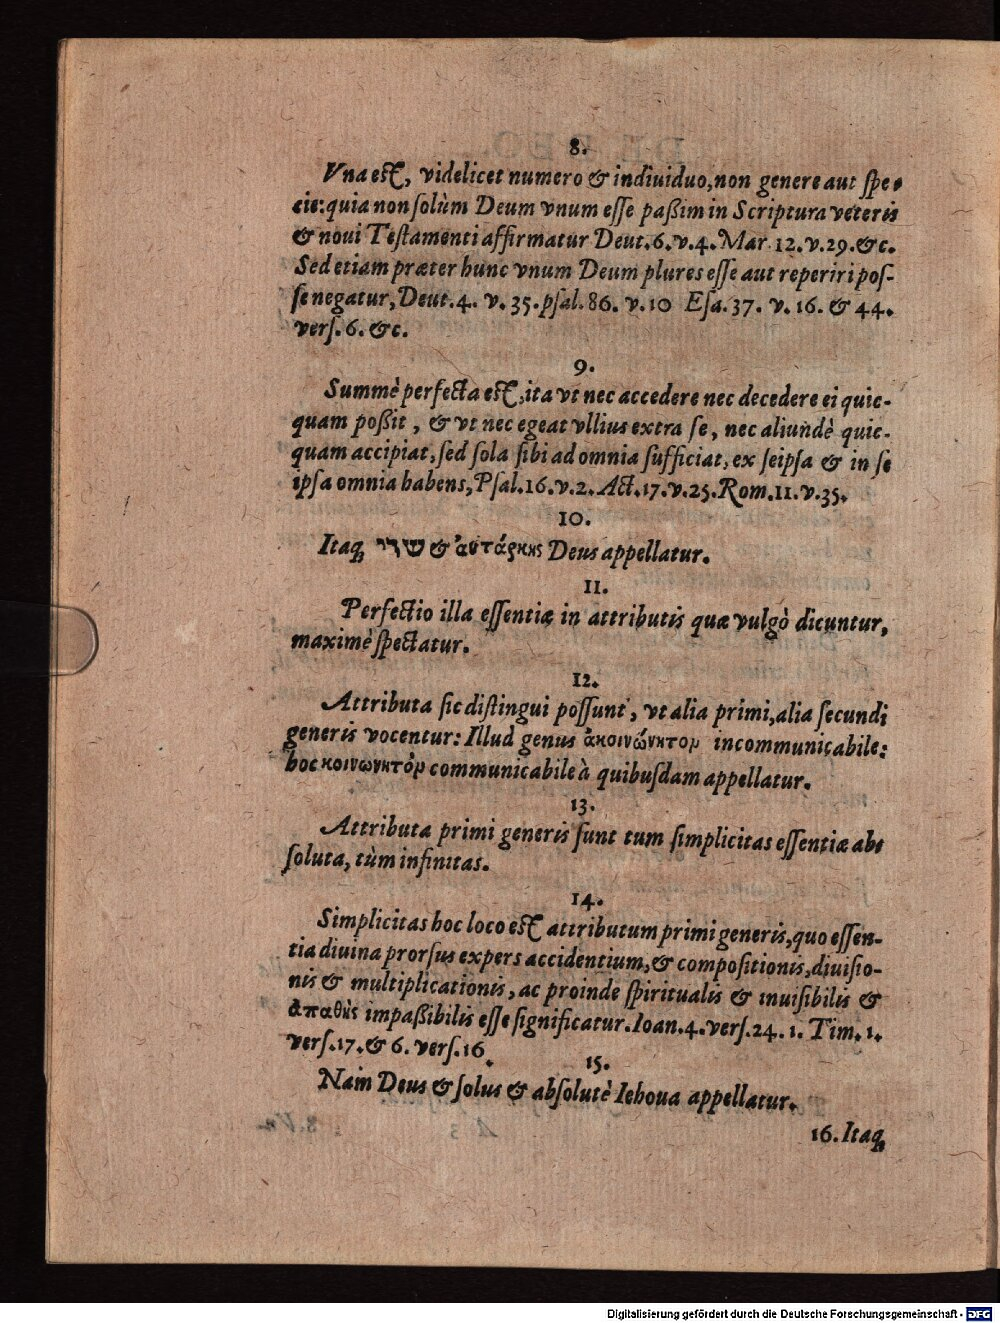 8.
Vna est, videlicet numero & indiuiduo, non genere aut spe-
cie: quia non solùm Deum vnum esse paßim in Scriptura veteris
& noui Testamenti affirmatur Deut. 6. v. 4. Mar. 12. v. 29. &c.
Sed etiam præter hunc vnum Deum plures esse aut reperiri pos-
se negatur, Deut. 4. v. 35. psal. 86. v. 10 Esa. 37. v. 16. & 44.
vers. 6. &c.
9.
Summè perfecta est, ita vt nec accedere nec decedere ei quic-
quam poßit, & vt nec egeat vllius extra se, nec aliundè quic-
quam accipiat, sed sola sibi ad omnia sufficiat, ex seipsa & in se
ipsa omnia habens, Psal. 16. v. 2. Act. 17. v. 25. Rom. 11. v. 35.
10.
Itaq; שדי & ἀυτάρκης Deus appellatur.
11.
Perfectio illa essentiæ in attributis quæ vulgò dicuntur,
maximè spectatur.
12.
Attributa sic distingui possunt, vt alia primi, alia secundi
generis vocentur: Illud genus ἀκοινώνητον incommunicabile:
hoc κοινωνητὸν communicabile à quibusdam appellatur.
13.
Attributa primi generis sunt tum simplicitas essentiæ abs
soluta, tùm infinitas.
14.
Simplicitas hoc loco est attributum primi generis, quo essen-
tia diuina prorsus expers accidentium, & compositionis, diuisio-
nis & multiplicationis, ac proinde spiritualis & inuisibilis &
ἀπαθὴς impaßibilis esse significatur. Ioan. 4. vers. 24. 1. Tim. 1.
vers. 17. & 6. vers. 16.
15.
Nam Deus & solus & absolutè Iehoua appellatur.
16. Itaq;
Digitalisierung gefördert durch die Deutsche Forschungsgemeinschaft - DFG